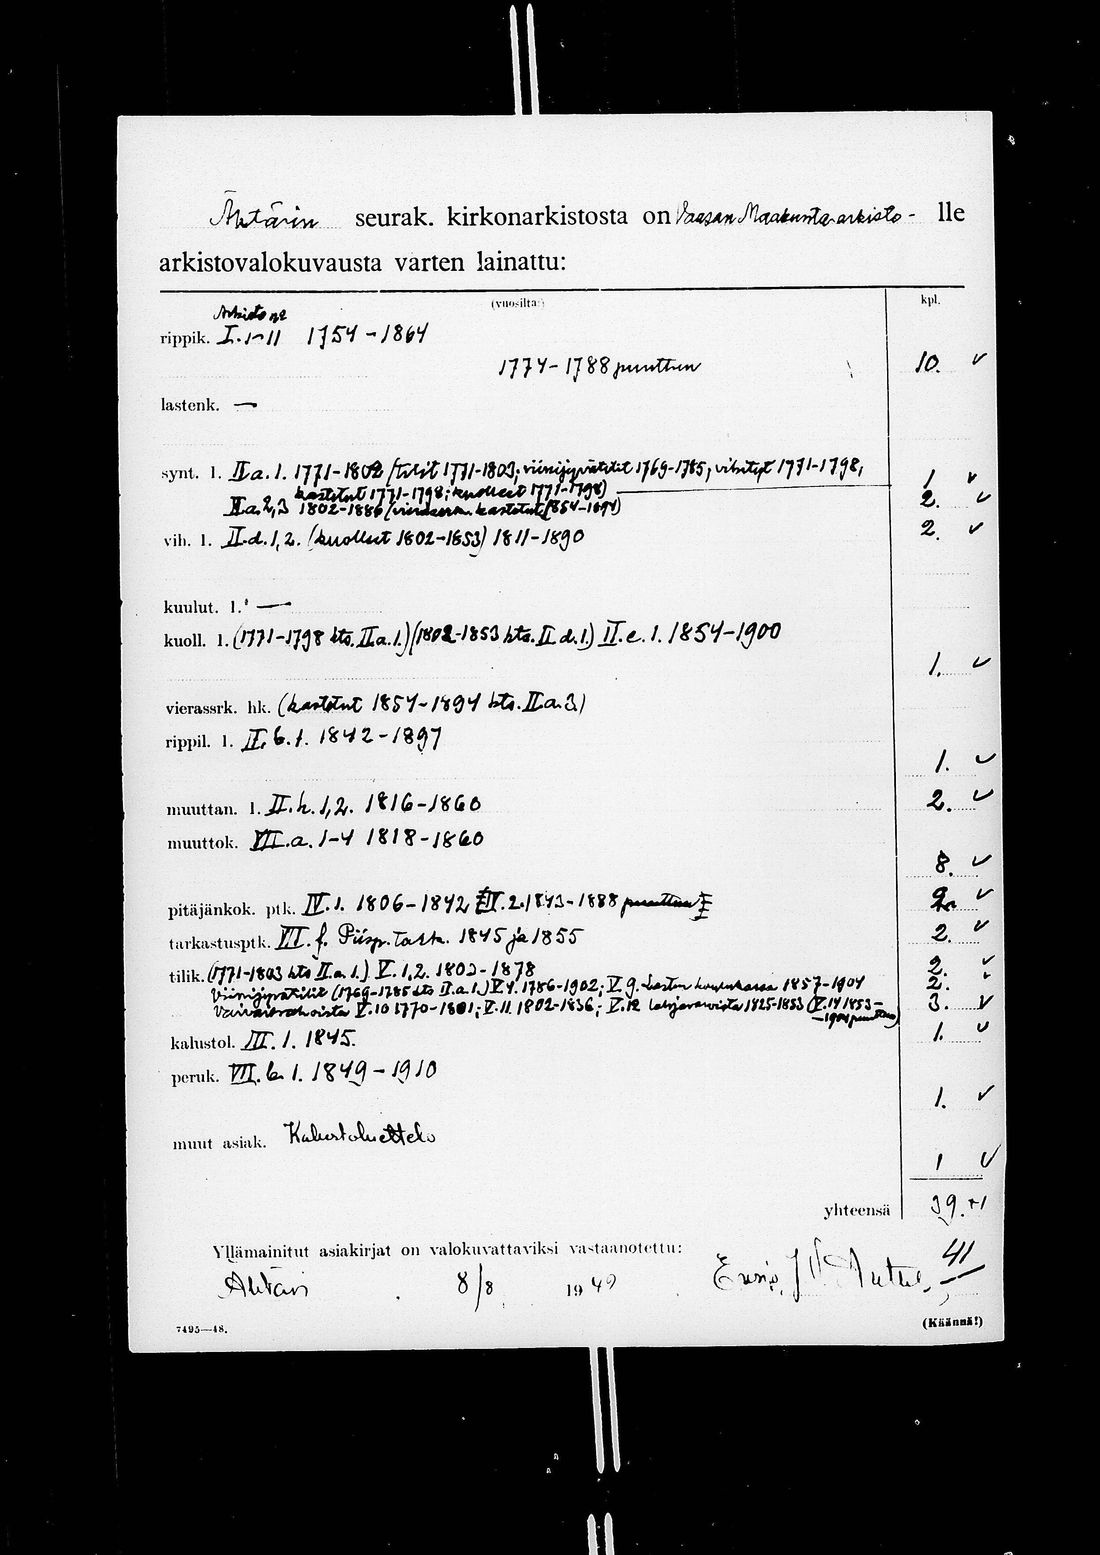 Ähtärin seurak. kirkonarkistosta on Vaasan Maakunta-arkisto - lle
arkistovalokuvausta varten lainattu:
(vuosilta:) kpl.
Arkisto n:o
rippik. I. 1-11 1754-1864
1774-1788 puuttuu 10. ✓
lastenk. —
synt. l. II a. 1. 1771-1802 (tilit 1771-1803; viinijyvätilit 1769-1785; vihityt 1771-1798,
kastetut 1771-1798; kuolleet 1771-1798) 1 ✓
II a. 2,3 1802-1886 (vierasrk. kastetut 1854-1894) 2. ✓
vih. l. II.d.1,2. (kuolleet 1802-1853) 1811-1890 2. ✓
kuulut. l. —
kuoll. l. (1771-1798 kts. II.a.1.) (1802-1853 kts. II.d.1.) II.e.1. 1854-1900
1. ✓
vierassrk. hk. (kastetut 1854-1894 kts. II.a.3)
rippil. l. II. b. 1. 1842-1897
1. ✓
muuttan. l. II.h.1,2. 1816-1860 2. ✓
muuttok. VII.a. 1-4 1818-1860
8. ✓
pitäjänkok. ptk. IV.1. 1806-1842 IV.2. 1843-1888 puuttuu 2. ✓
tarkastusptk. VII. f. Piisp. Tark. 1845 ja 1855 2. ✓
tilik. (1771-1803 kts II.a.1.) V.1,2. 1802-1878 2. ✓
Viinijyvätilit (1769-1785 kts II.a.1.) V.4. 1786-1902; V.9. lasten koulukassa 1857-1904 2.
Vaivaisrahoista V.10 1770-1801; V.11. 1802-1836; V.12 lahjavaroista 1825-1853 (V.14 1853- 3. ✓
-1904 puuttuu)
kalustol. III. 1. 1845. 1. ✓
peruk. VII. b 1. 1849-1910
1. ✓
muut asiak. Kalustoluettelo
1 ✓
yhteensä 39.+1
41
Yllämainitut asiakirjat on valokuvattaviksi vastaanotettu:
Ähtäri 8/8 1949
7495—48. (Käännä!)